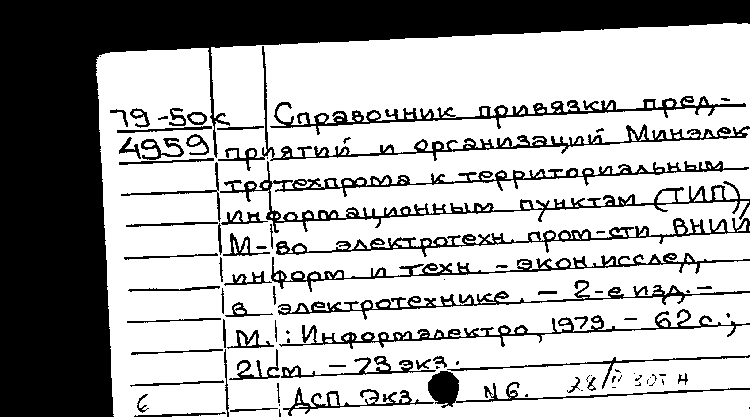 79-50к Справочник привязки пред-
4959 приятий и организаций Минэлек
тротехпрома к территориальным
информационным пунктам (ТИП),
М-во электротехн. пром-сти, ВНИИ
информ. и техн. - экон. исслед.
в электротехнике. - 2-е изд. -
М.: Информэлектро, 1979. - 62 с.;
21 см. - 73 экз.
6 Дсп. Экз. N 6.